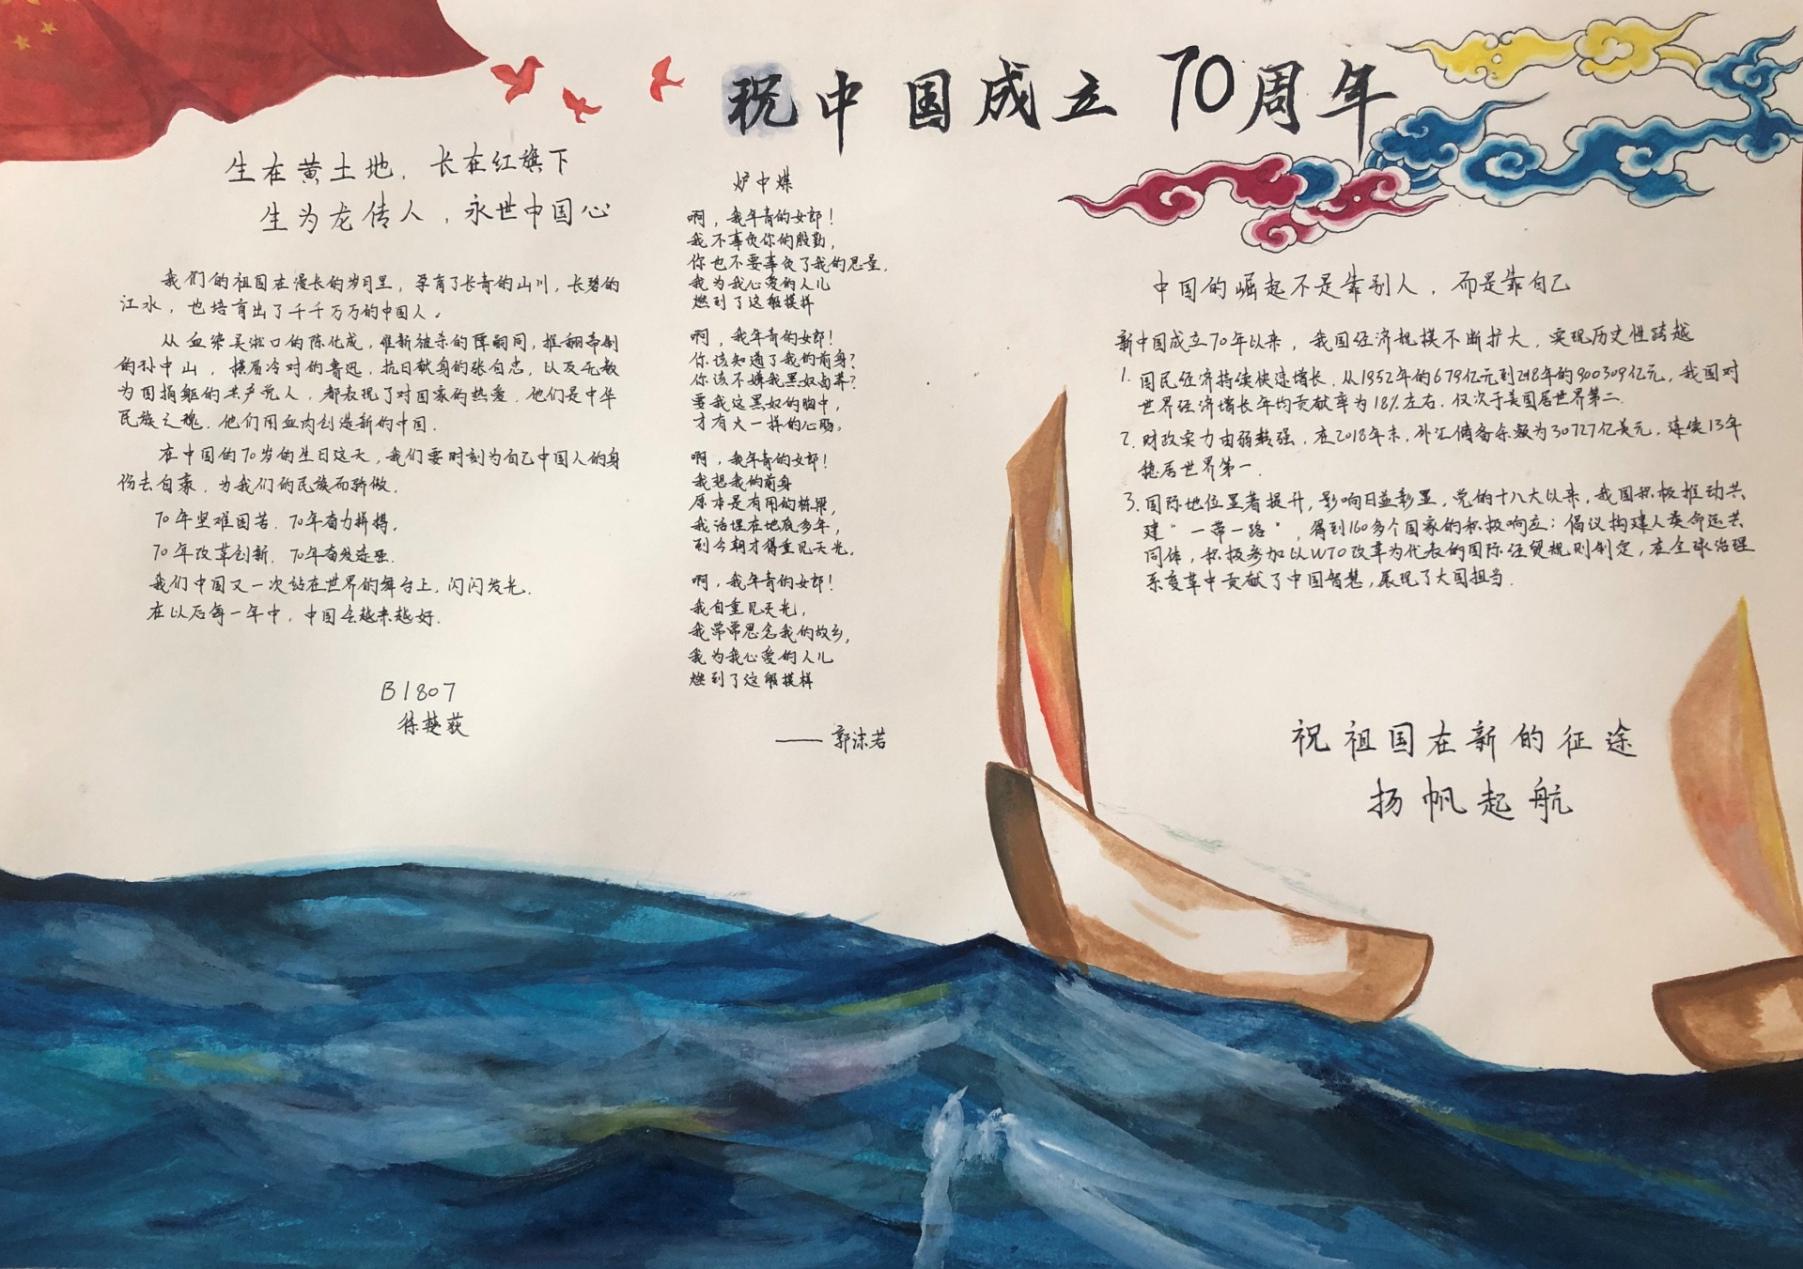 祝中国成立70周年
生在黄土地，长在红旗下
生为龙传人，永世中国心
我们的祖国在漫长的岁月里，孕育了长青的山川，长碧的
江水，也培育出了千千万万的中国人。
从血染吴淞口的陈化成，维新被杀的谭嗣同，推翻帝制
的孙中山，横眉冷对的鲁迅，抗日献身的张自忠，以及无数
为国捐躯的共产党人，都表现了对国家的热爱，他们是中华
民族之魂，他们用血肉创造新的中国.
在中国的70岁的生日这天，我们要时刻为自己中国人的身
份去自豪，为我们的民族而骄傲.
70年坚难困苦，70年奋力拼搏，
70年改革创新，70年奋发逐强.
我们中国又一次站在世界的舞台上，闪闪发光.
在以后每一年中，中国会越来越好.
B1807
徐楚荻
炉中煤
啊，我年青的女郎！
我不辜负你的殷勤，
你也不要辜负了我的思量.
我为我心爱的人儿
燃到了这般模样
啊，我年青的女郎！
你该知道了我的前身？
你该不嫌我黑奴卤莽？
要我这黑奴的胸中，
才有火一样的心肠，
啊，我年青的女郎！
我想我的前身
原本是有用的栋梁，
我活埋在地底多年，
到今朝才得重见天光.
啊，我年青的女郎！
我自重见天光，
我常常思念我的故乡，
我为我心爱的人儿
燃到了这般模样
——郭沫若
中国的崛起不是靠别人，而是靠自己
新中国成立70年以来，我国经济规模不断扩大，实现历史性跨越
1. 国民经济持续快速增长，从1952年的679亿元到2018年的900309亿元，我国对
世界经济增长年均贡献率为18%左右，仅次于美国居世界第二.
2. 财政实力由弱转强，在2018年末，外汇储备余额为30727亿美元，连续13年
稳居世界第一.
3. 国际地位显著提升，影响日益彰显，党的十八大以来，我国积极推动共
建"一带一路"，得到160多个国家的积极响应；倡议构建人类命运共
同体，积极参加以WTO改革为代表的国际经贸规则制定，在全球治理
系变革中贡献了中国智慧，展现了大国担当.
祝祖国在新的征途
扬帆起航